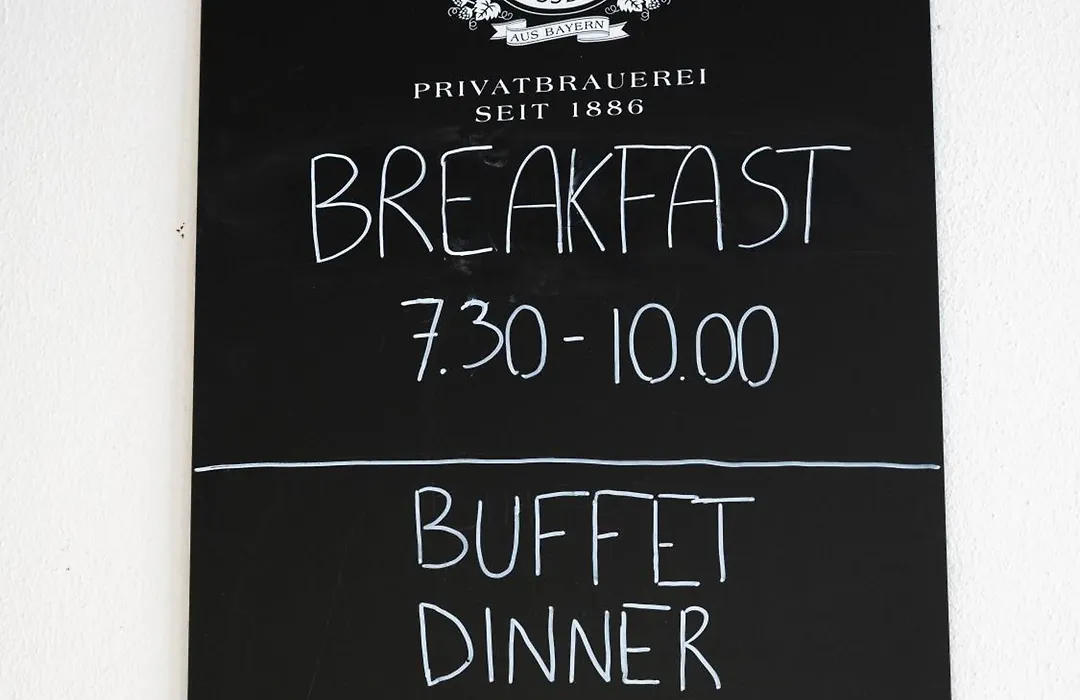 AUS BAYERN
PRIVATBRAUEREI
SEIT 1886
BREAKFAST
7.30 - 10.00
BUFFET
DINNER